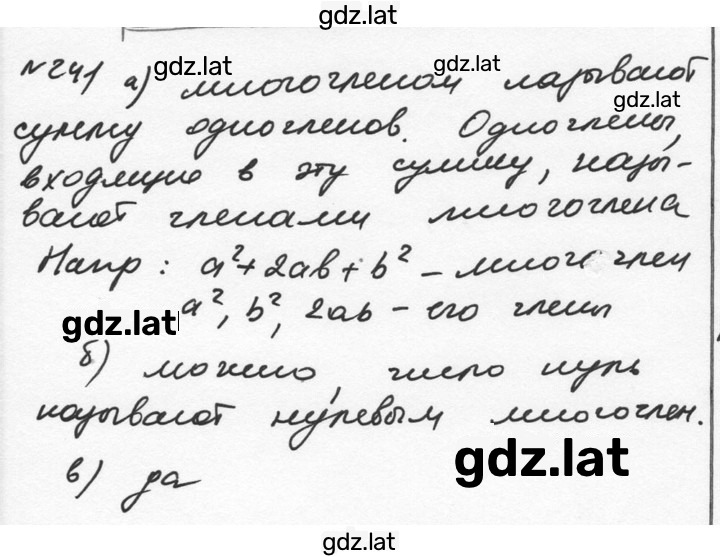 gdz.lat
№241 а) многочленом называют
gdz.lat
gdz.lat
сумму одночленов. Одночлены,
gdz.lat
входящие в эту сумму, назы-
вают членами многочлена
Напр: a²+2ab+b² - многочлен
gdz.lat
a², b², 2ab - его члены
б) можно, число нуль
называют нулевым многочлен.
в) да
gdz.lat
gdz.lat